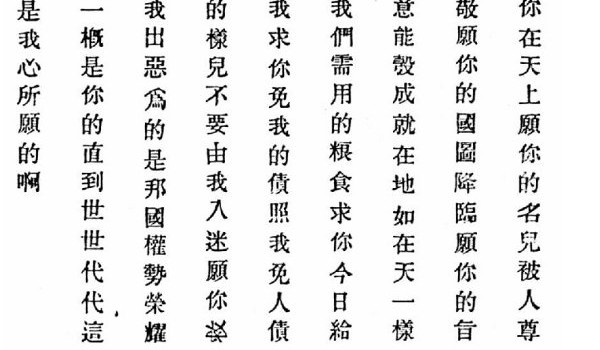 你在天上願你的名兒被人尊
敬願你的國圖降臨願你的旨
意能彀成就在地如在天一樣
我們需用的粮食求你今日給
我求你免我的債照我免人債
的樣兒不要由我入迷願你救
我出惡爲的是邦國權勢榮耀
一概是你的直到世世代代這
是我心所願的啊